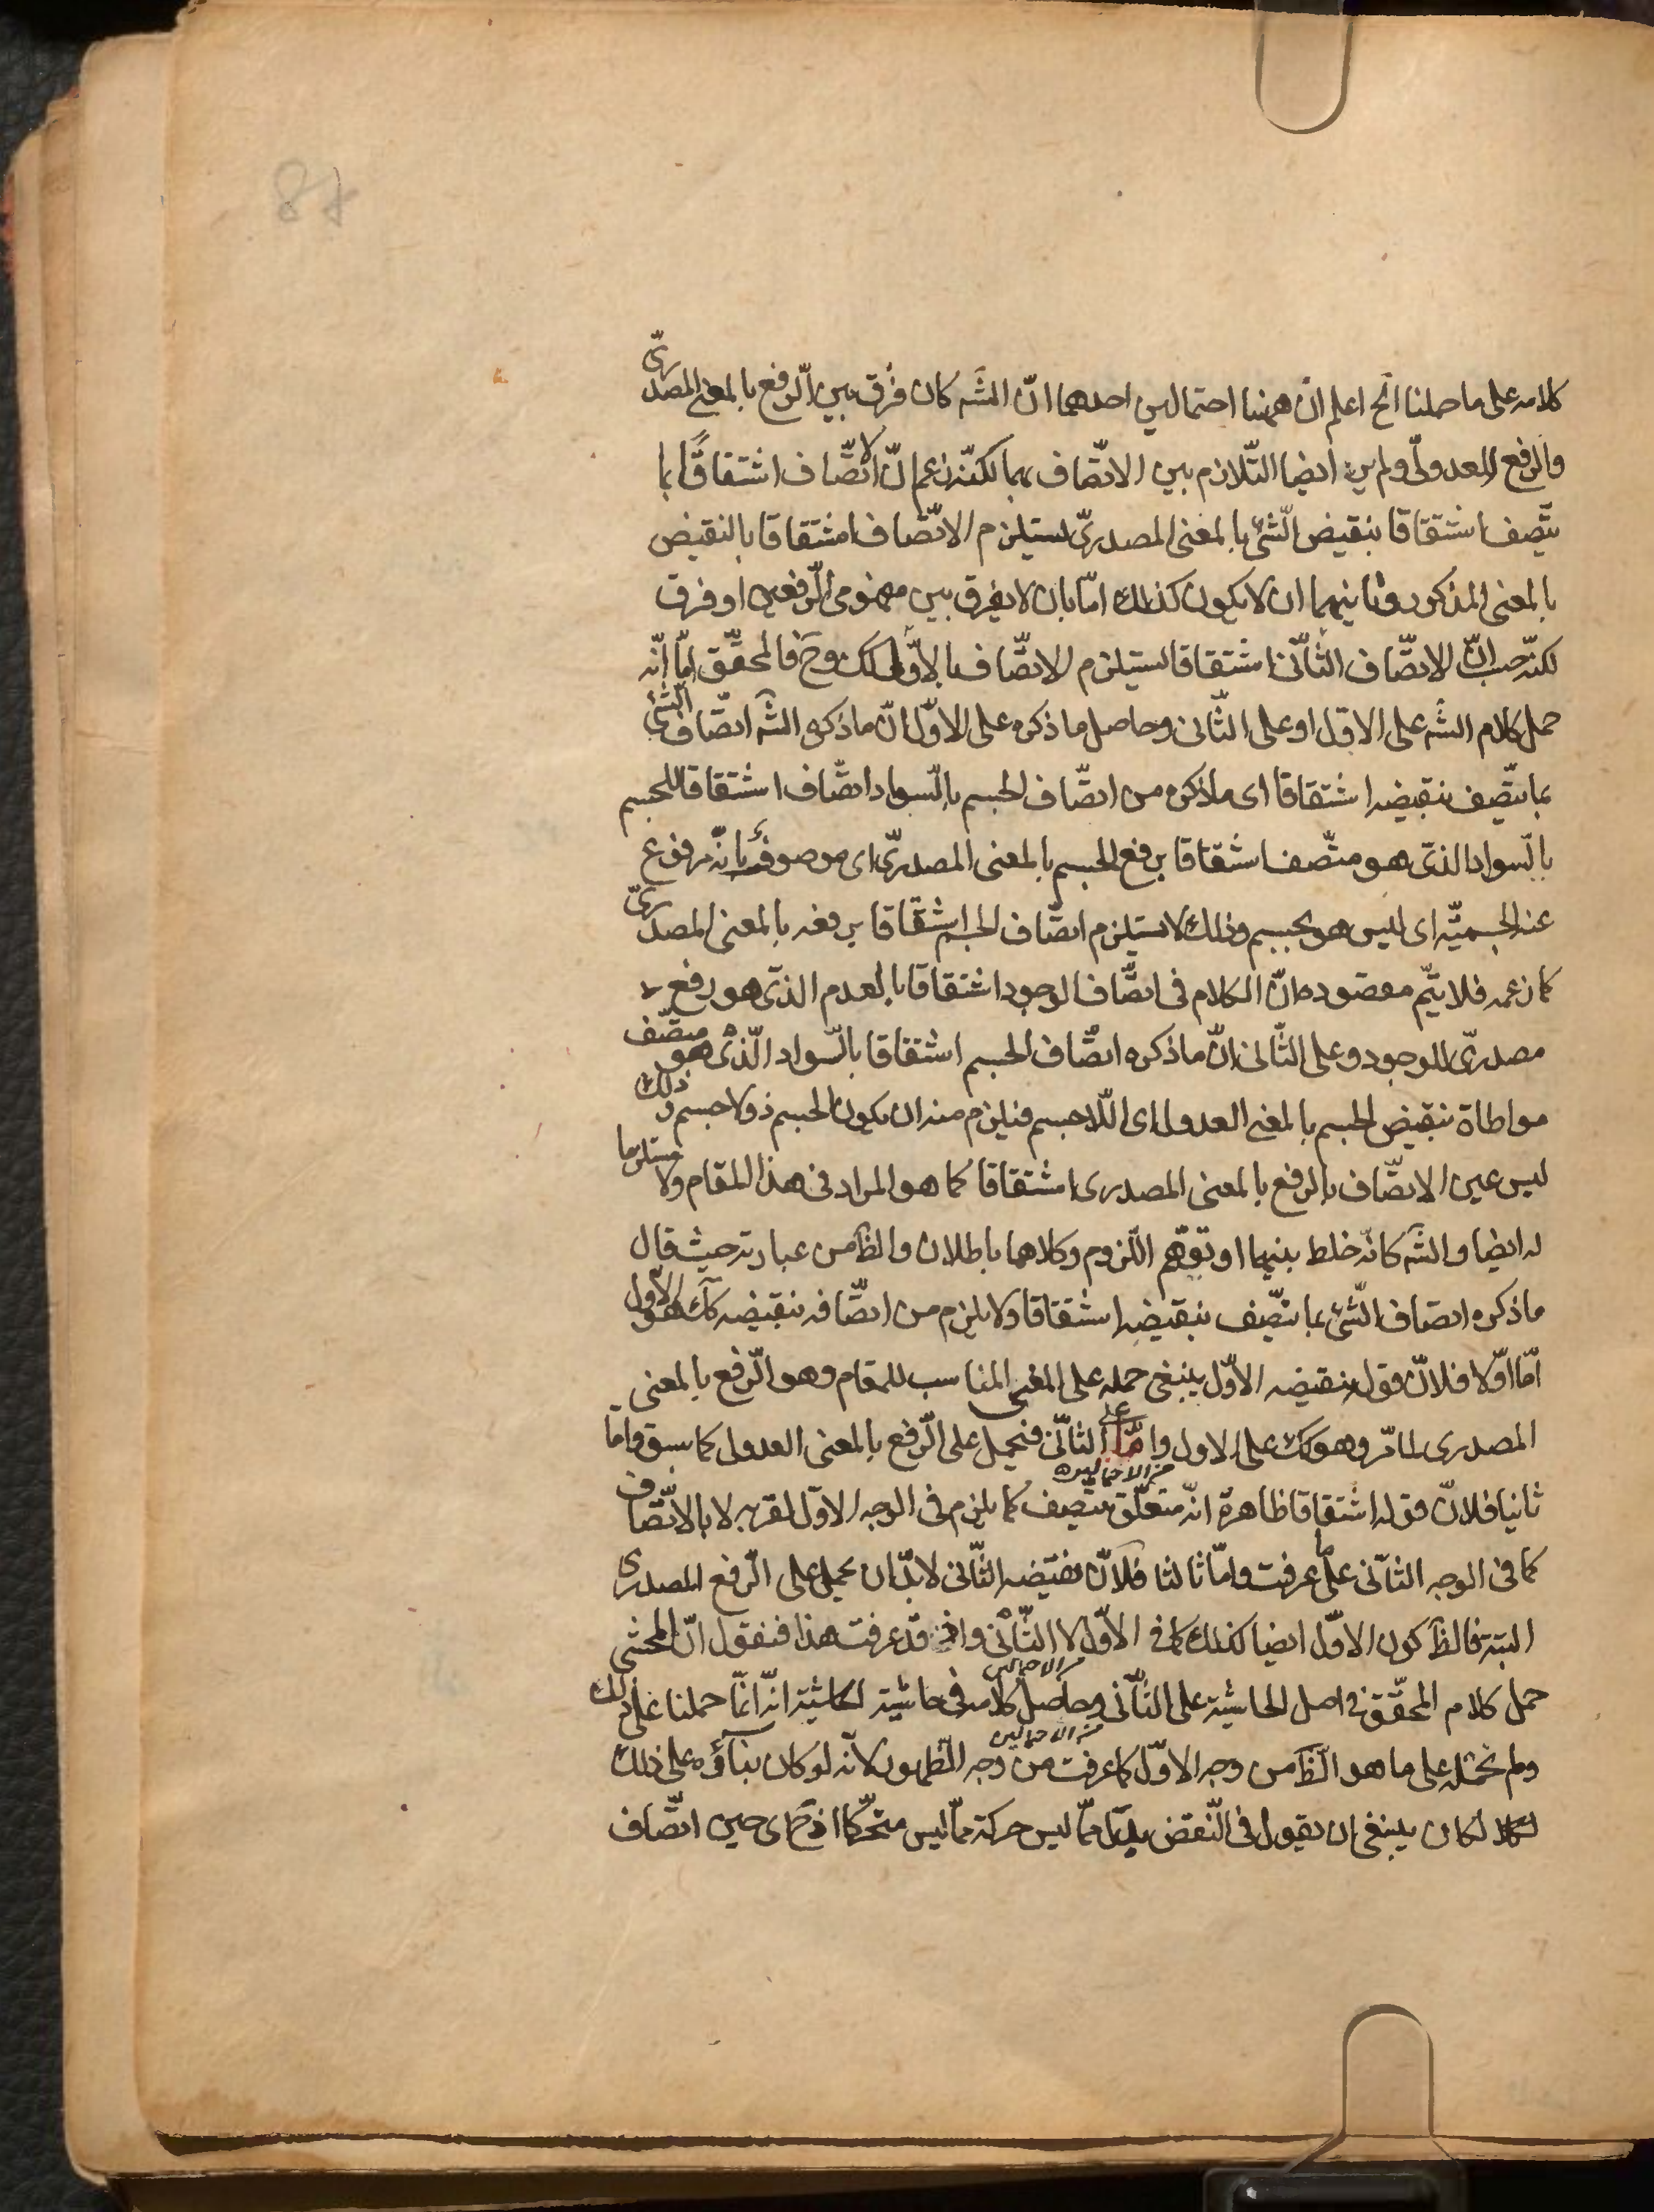 كلامه على ما حملنا الخ اعلم ان ههنا احتمالين احدهما ان الشّه كان فرق بين الرّفع بالمعنى المصدرىّ
والرفع العدولى ولم ير ايضا التّلازم بين الاتّصاف بهما لكنّه زعم انّ الاتّصاف اشتقاقًا بما
يتّصف اشتقاقا بنقيض الشّئ بالمعنى المصدرىّ يستلزم الاتّصاف اشتقاقا بالنقيض
بالمعنى المذكور وثانيهما ان لا يكون كذلك امّا بان لا يفرق بين مفهومى الرّفعين او فرق
لكنّه حسب انّ الاتصّاف الثّانى اشتقاقا يستلزم الاتصّاف بالاوّل كك وحَ فالمحقّق امّا انّه
حمل كلام الشّه على الاوّل او على الثّانى وحاصل ما ذكره على الاوّل انّ ما ذكره الشّه اتصّاف الشّئ
بما يتّصف بنقيضه اشتقاقا اى ما ذكره من اتصّاف الجسم بالسّواد اتصّاف اشتقاقا للجسم
بالسّواد الذى هو متّصف اشتقاقا برفع الجسم بالمعنى المصدرىّ اى موصوف بانّه مرفوع
عنه الجسميّة اى ليس هو بجسم وذلك لا يستلزم اتصّاف الجسم اشتقاقا برفعه بالمعنى المصدرىّ
كما زعمه فلا يتمّ مقصوده لانّ الكلام فى اتصّاف الوجود اشتقاقا بالعدم الذى هو رفع
مصدرىّ للوجود وعلى الثّانى انّ ما ذكره اتصّاف الجسم اشتقاقا بالسّواد الّذى هو متصّف
مواطاة بنقيض الجسم بالمعنى العدولى اى اللّاجسم فيلزم منه ان يكون الجسم ذو لا جسم وذلك
ليس عين الاتصّاف بالرفع بالمعنى المصدرى اشتقاقا كما هو المراد فى هذا المقام ولا مستلزما
له ايضا والشّه كانّه خلط بينهما او توهّم اللّزوم وكلاهما باطلان والظّ من عبارته حيث قال
ما ذكره اتصاف الشّئ بما يتّصف بنقيضه اشتقاقا ولا يلزم من اتصّافه بنقيضه كك هو الاوّل
امّا اوّلا فلانّ قوله بنقيضه الاوّل ينبغى حمله على المعنى المناسب للمقام وهو الرّفع بالمعنى
المصدرى لما مّر وهو كك على الاول وامّا على الثّانى فيحمل على الرّفع بالمعنى العدولى كما سبق وامّا
من الاحتمالين
ثانيا فلانّ قوله اشتقاقا ظاهره انّه متعلّق بيتّصف كما يلزم فى الوجه الاوّل لقربه لا بالاتّصاف
كما فى الوجه الثّانى على ما عرفت وامّا ثالثا فلانّ نقيضه الثّانى لا بدّ ان يحمل على الرّفع المصدرى
البتة فالظّ كون الاوّل ايضا كذلك كما فى الاوّل لا الثّانى واذ قد عرفت هذا فنقول انّ المحشى
من الاحتمالين
حمل كلام المحقّق فى اصل الحاشية على الثّانى وحاصل كلامه فى حاشية الحاشية انّه انّما حملنا على ذلك
من الاحتمالين
ولم نحمله على ما هو الظّ من وجه الاوّل كما عرفت من وجه الظّهور لانّه لو كان بناؤه على ذلك
لكان ينبغى ان يقول فى النّقض بدل ممّا ليس حركة ممّا ليس متحرّكا اذ حَ اى حين اتصّاف